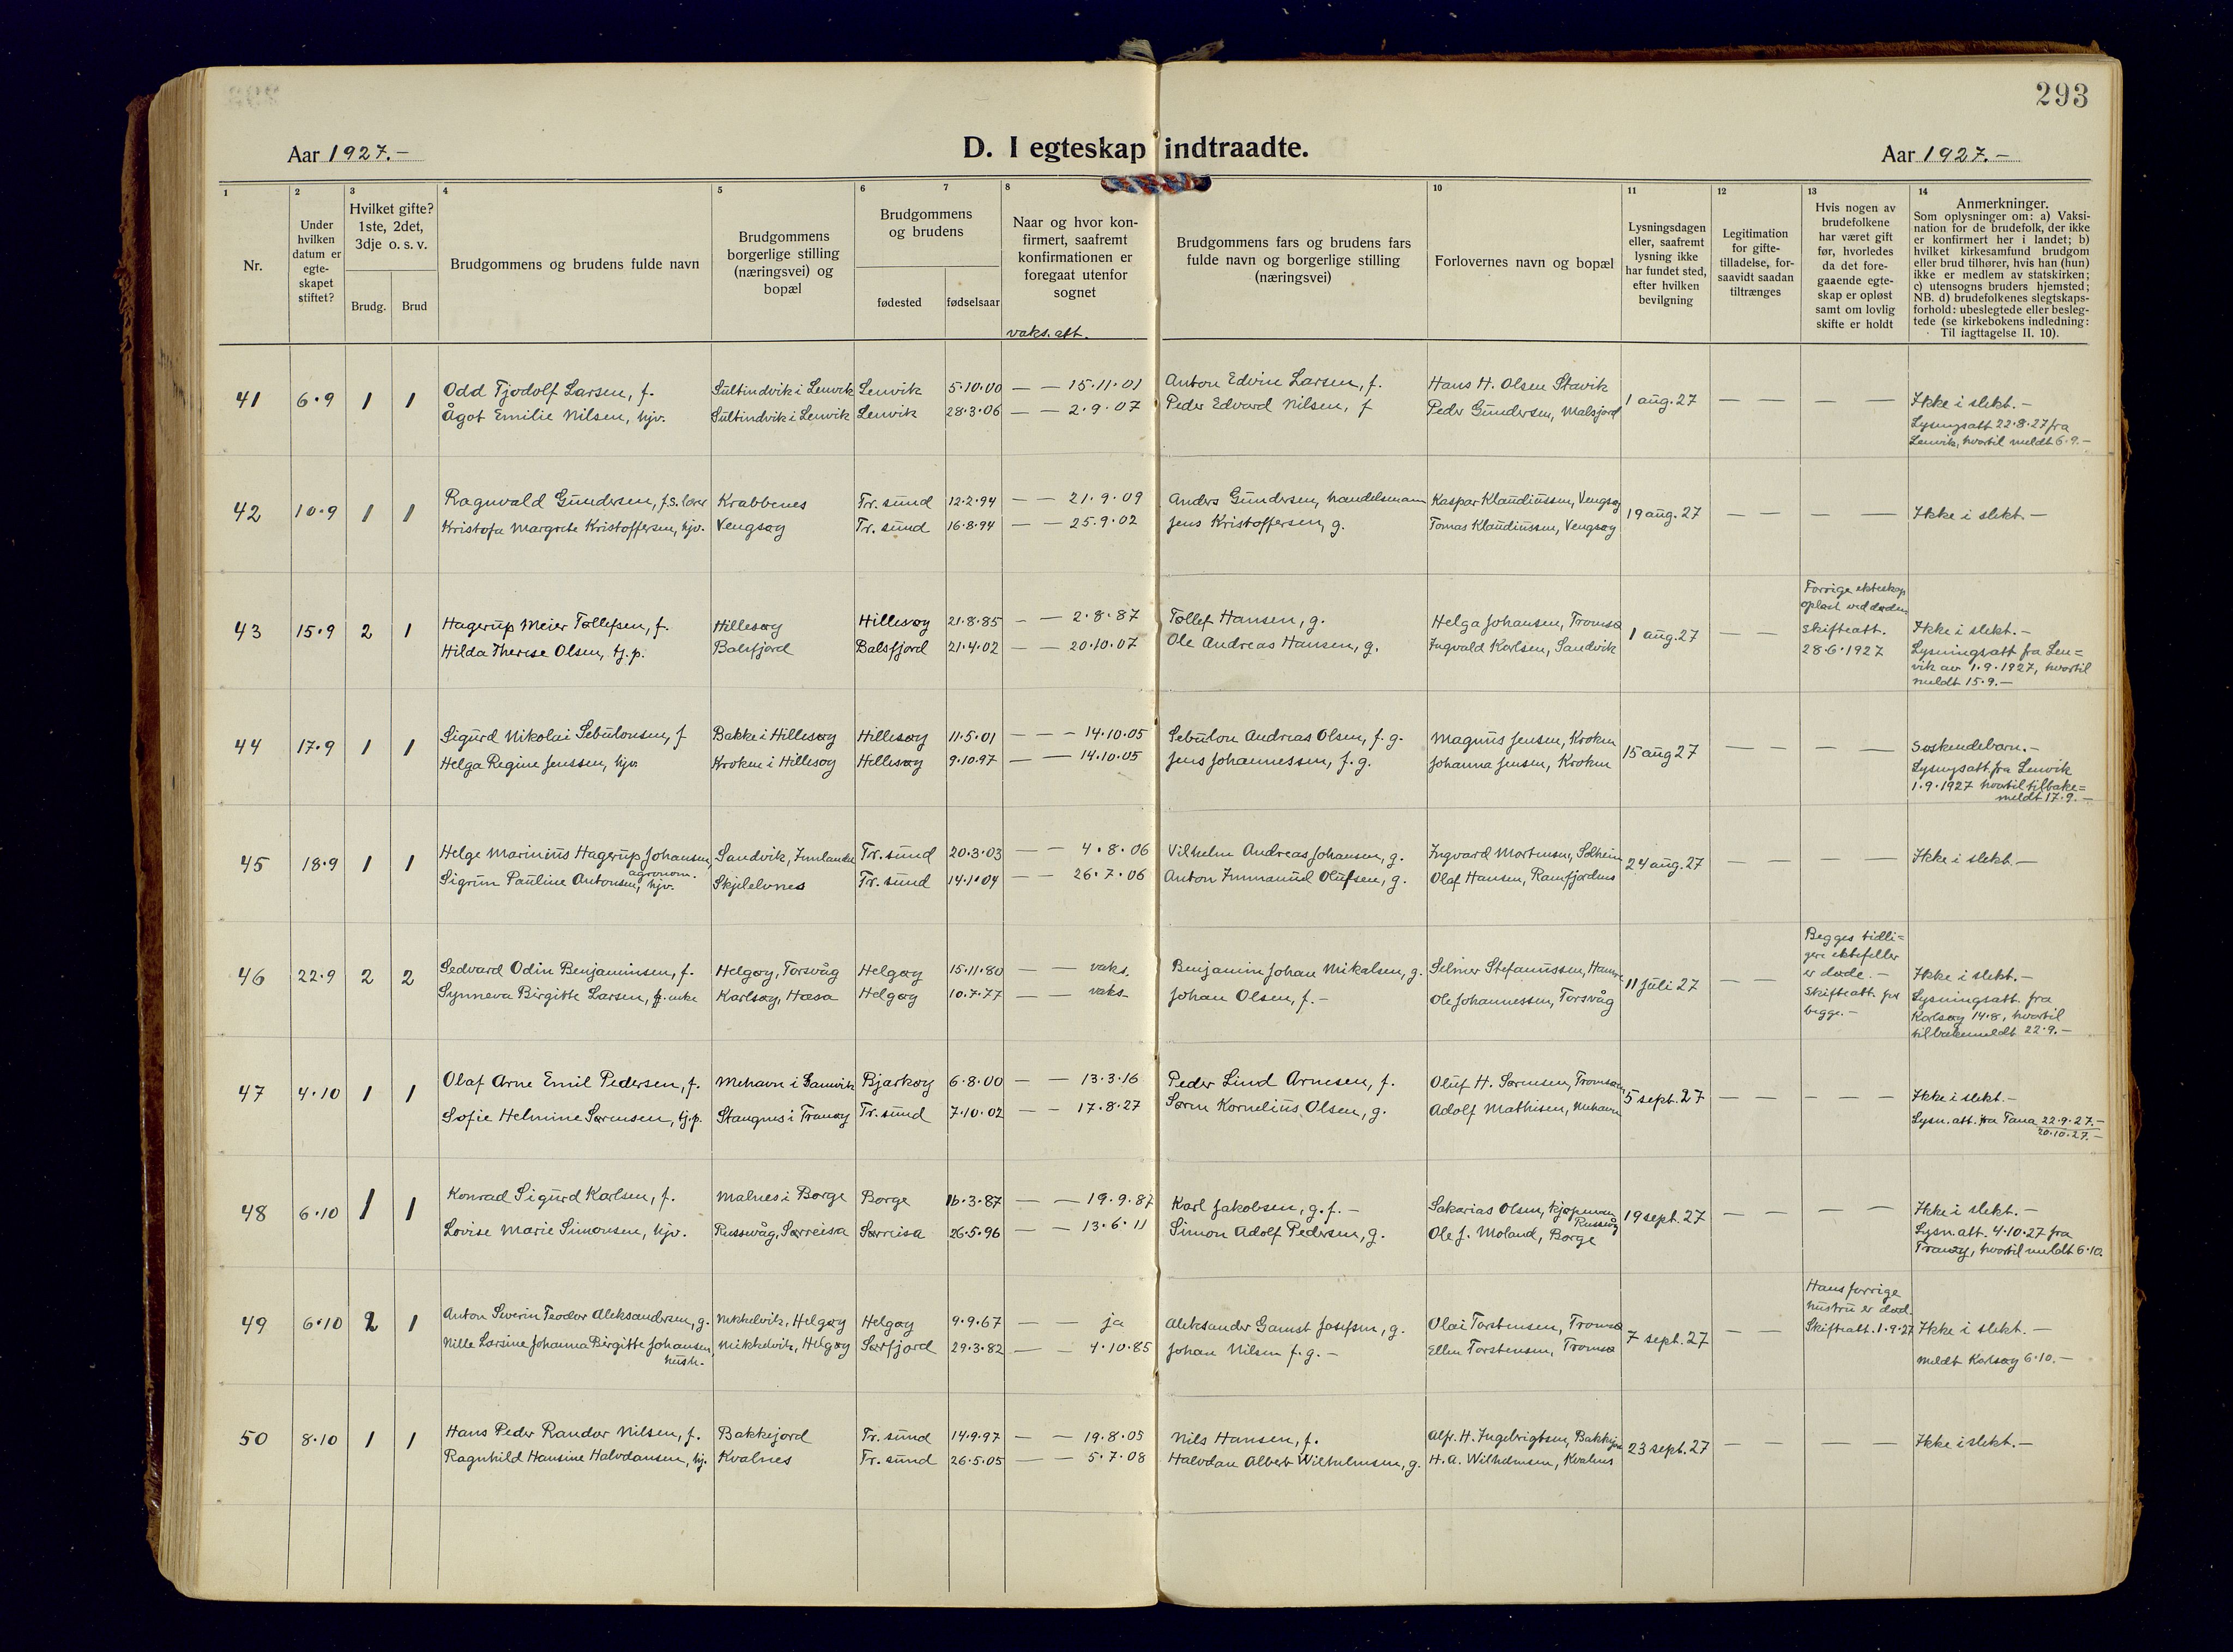 293
Aar 1927.-
D. I egteskap indtraadte.
Aar 1927.-
1 2 3 4 5 6 7 8 10 11 12 13 14
Nr.
Under hvilken datum er egte-skapet stiftet?
Hvilket gifte? 1ste, 2det, 3dje o. s. v.
Brudg. Brud
Brudgommens og brudens fulde navn
Brudgommens borgerlige stilling (næringsvei) og bopæl
Brudgommens og brudens
fødested fødselsaar
Naar og hvor kon-firmert, saafremt konfirmationen er foregaat utenfor sognet
vaks. att.
Brudgommens fars og brudens fars fulde navn og borgerlige stilling (næringsvei)
Forlovernes navn og bopæl
Lysningsdagen eller, saafremt lysning ikke har fundet sted, efter hvilken bevilgning
Legitimation for gifte-tilladelse, for-saavidt saadan tiltrænges
Hvis nogen av brudefolkene har været gift før, hvorledes da det fore-gaaende egte-skap er opløst samt om lovlig skifte er holdt
Anmerkninger.
Som oplysninger om: a) Vaksi-nation for de brudefolk, der ikke er konfirmert her i landet; b) hvilket kirkesamfund brudgom eller brud tilhører, hvis han (hun) ikke er medlem av statskirken; c) utensogns bruders hjemsted; NB. d) brudefolkenes slegtskaps-forhold: ubeslegtede eller besleg-tede (se kirkebokens indledning: Til iagttagelse II. 10).
41 6.9 1 1
Odd Tjodolf Larsen, f. Sultindvik i Lenvik Lenvik 5.10.00 — — 15.11.01 Anton Edvin Larsen, f. Hans H. Olsen Stavik
Ågot Emilie Nilsen, hjv. Sultindvik i Lenvik Lenvik 28.3.06 — — 2.9.07 Peder Edvard Nilsen, f Peder Gundersen, Malsjord
1 aug. 27 — — — —
Ikke i slekt.-
Lysingsatt 22.8.27 fra
Lenvik, hvortil meldt 6.9.-
42 10.9 1 1
Ragnvald Gundersen, f.s. lærer Krabbenes Tr. sund 12.2.94 — — 21.9.09 Anders Gundersen, handelsmann Kaspar Klaudiussen, Vengsøy
Kristofa Margrete Kristoffersen, hjv. Vengsøy Tr. sund 16.8.94 — — 25.9.02 Jens Kristoffersen, g. Tomas Klaudiussen, Vengsøy
19 aug. 27 — — — —
Ikke i slekt.-
43 15.9 2 1
Hagerup Meier Tollefsen, f. Hillesøy Hillesøy 21.8.85 — — 2.8.87 Tollef Hansen, g. Helga Johansen, Tromsø
Hilda Therese Olsen, tj.p. Balsfjord Balsfjord 21.4.02 — — 20.10.07 Ole Andreas Hansen, g. Ingvald Karlsen, Sandvik
1 aug. 27 — —
Forrige ekteskap
opløst ved døden
skifteatt.
28.6.1927
Ikke i slekt.-
Lysningsatt fra Len=
vik av 1.9.1927, hvortil
meldt 15.9.-
44 17.9 1 1
Sigurd Nikolai Sebulonsen, f Bakke i Hillesøy Hillesøy 11.5.01 — — 14.10.05 Sebulon Andreas Olsen, f. g. Magnus Jensen, Kroken
Helga Regine Jenssen, hjv. Kroken i Hillesøy Hillesøy 9.10.97 — — 14.10.05 Jens Johannessen, f. g. Johanna Jensen, Kroken
15 aug 27 — — — —
Søskendebarn.-
Lysingsatt. fra Lenvik
1.9.1927 hvortil tilbake=
meldt 17.9.-
45 18.9 1 1
Helge Marinius Hagerup Johansen, agronom. Sandvik, Tr. sund 20.3.03 — — 4.8.06 Vilhelm Andreas Johansen, g. Ingvard Mortensen, Solheim
Sigrun Pauline Antonsen, hjv. Skjelelvnes Tr. sund 14.1.04 — — 26.7.06 Anton Immanuel Olufsen, g. Olaf Hansen, Ramfjordnes
24 aug. 27 — — — —
Ikke i slekt.-
46 22.9 2 2
Sedvard Odin Benjaminsen, f. Helgøy, Torsvåg Helgøy 15.11.80 — — vaks. Benjamin Johan Mikalsen, g. Selmer Stefanussen,
Synneva Birgitte Larsen, f. enke Karlsøy, Hæsa Helgøy 10.7.77 — — vaks- Johan Olsen, f.- Ole Johannessen, Torsvåg
11 juli 27 — —
Begges tidli=
gere ektefeller
er døde.-
Skifteatt. for
begge.-
Ikke i slekt.-
Lysningsatt. fra
Karlsøy 14.8, hvortil
tilbakemeldt 22.9.-
47 4.10 1 1
Olaf Arne Emil Pedersen, f. Mehavn i Bjarkøy 6.8.00 — — 13.3.16 Peder Lind Arnesen, f. Oluf H. Sørensen,
Sofie Helmine Sørensen, tj.p. Stangnes i Tranøy Tr. sund 7.10.02 — — 17.8.27 Søren Kornelius Olsen, g. Adolf Mathisen, Mehavn
5 sept. 27 — — — —
Ikke i slekt.-
Lysn. att. fra Tana 22.9.27.-
20.10.27.-
48 6.10 1 1
Konrad Sigurd Karlsen, f. Malnes i Borge Borge 16.3.87 — — 19.9.87 Karl Jakobsen, g. f.- Sakarias Olsen, kjøpmann Russvåg
Lovise Marie Simonsen, hjv. Russvåg, Sørreisa Sørreisa 26.5.96 — — 13.6.11 Simon Adolf Pedersen, g. Ole J. Moland, Borge
19 sept. 27 — — — —
Ikke i slekt.-
Lysn. att. 4.10.27 fra
Tranøy, hvortil meldt 6.10.
49 6.10 2 1
Anton Severin Teodor Aleksandersen, g. Mikkelvik, Helgøy Helgøy 9.9.67 — — ja Aleksander Gamst Josefsen, g. Olai Torstensen, Tromsø
Nille Larsine Johanna Birgitte Johansen, hush. Mikkelvik, Helgøy Sørfjord 29.3.82 — — 4.10.85 Johan Nilsen f. g.- Ellen Torstensen, Tromsø
7 sept. 27 — —
Hans forrige
hustru er død.
Skifteatt. 1.9.27
Ikke i slekt.-
Meldt Karlsøy 6.10.-
50 8.10 1 1
Hans Peder Randor Nilsen, f. Bakkejord Tr. sund 14.9.97 — — 19.8.05 Nils Hansen, f. Alfr. H. Ingebrigtsen,
Ragnhild Hansine Halvdansen, hj. Kvalnes Tr. sund 26.5.05 — — 5.7.08 Halvdan Albert Wilhelmsen, g. H.A. Wilhelmsen, Kvalnes
23 sept. 27 — — — —
Ikke i slekt.-